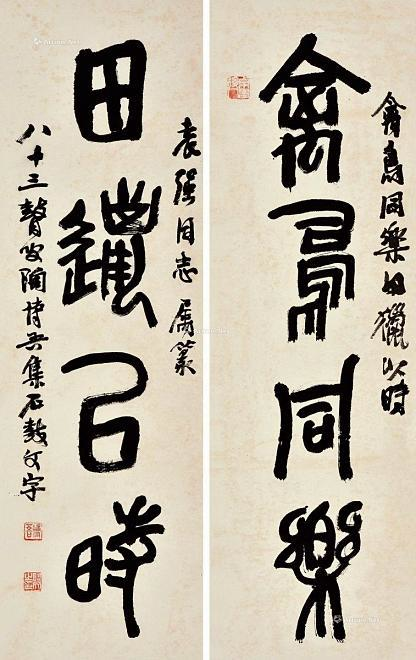 禽鳥同樂
禽鳥同樂田獵以時
田獵以時
袁強同志属篆
八十三瞽叟陶博吾集石鼓文字